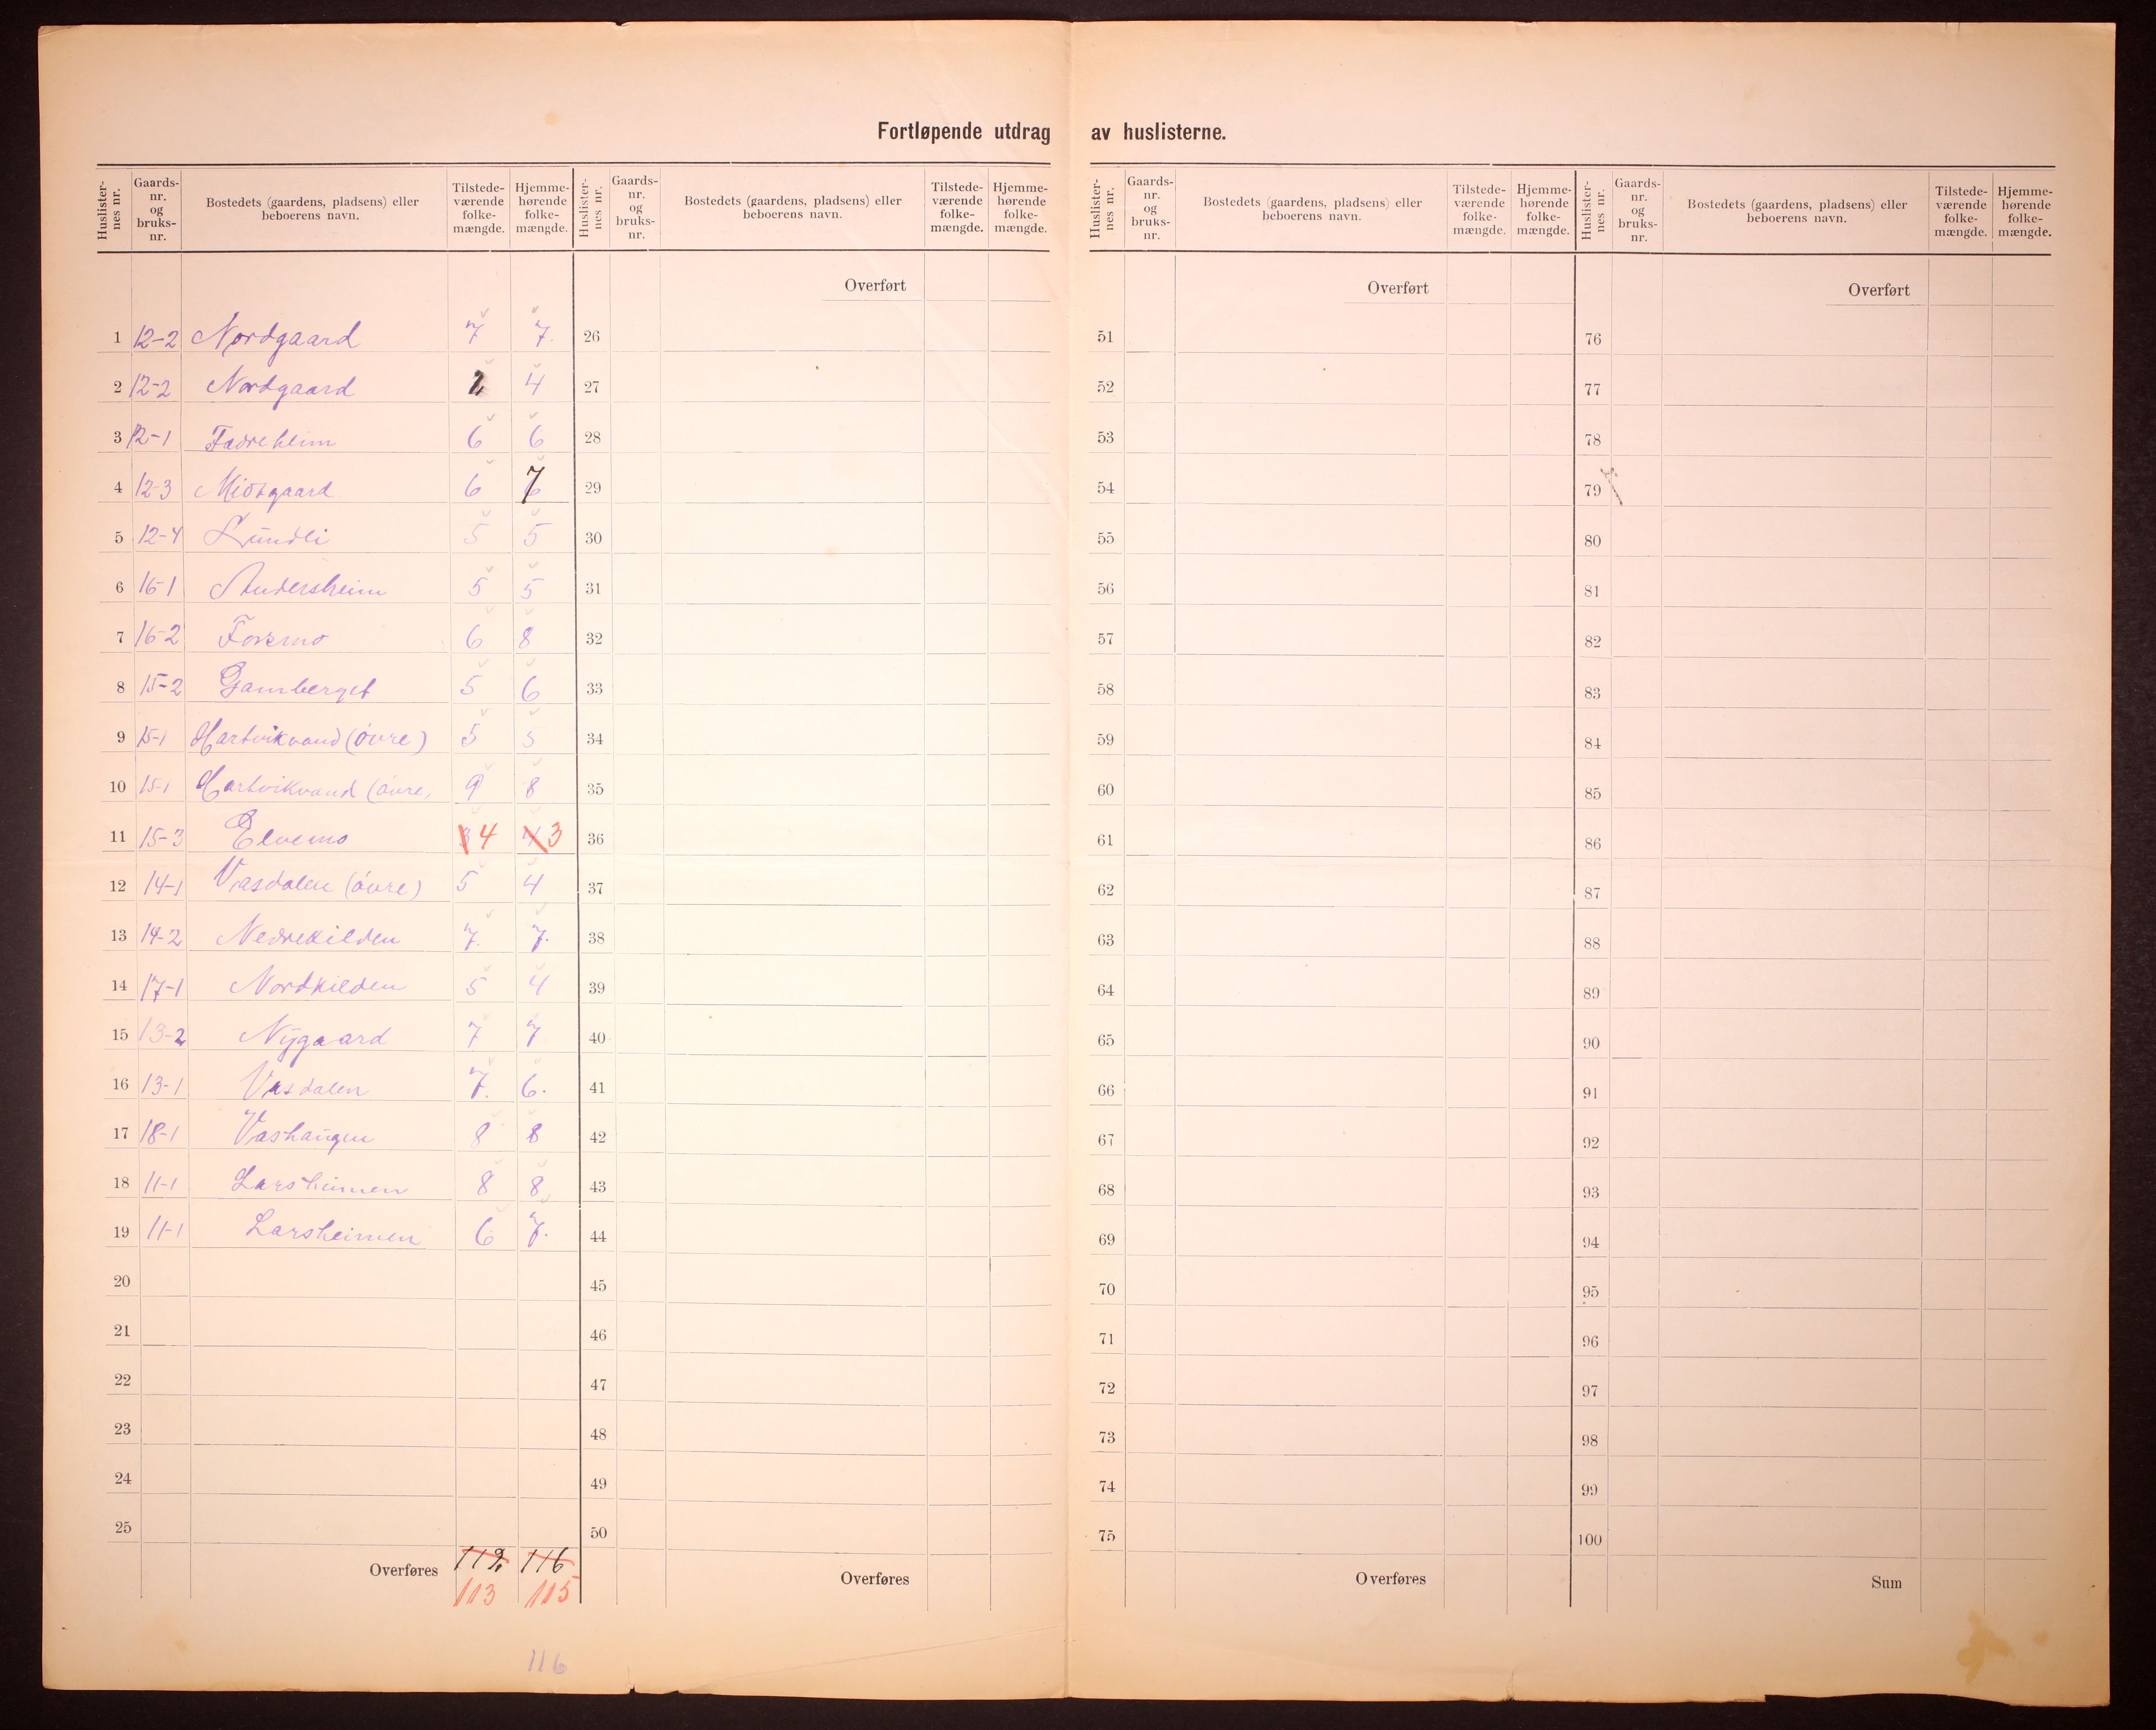 Fortløpende utdrag av huslisterne.
Huslister-nes nr. Gaards-nr. og bruks-nr. Bostedets (gaardens, pladsens) eller beboerens navn. Tilstede-værende folke-mængde. Hjemme-hørende folke-mængde.
1 12-2 Nordgaard 7 7.
2 12-2 Nordgaard 2 4
3 12-1 Fadreheim 6 6
4 12-3 Midtgaard 6 7
5 12-4 Lundli 5 5
6 16-1 Andersheim 5 5
7 16-2 Foremo 6 8
8 15-2 Gamberget 5 6
9 15-1 Hartvikvand (övre) 5 5
10 15-1 Hartvikvand (övre, 9 8
11 15-3 Elvemo 3 4 4 3
12 14-1 Vasdalen (övre) 5 4
13 14-2 Nedrekilden 7. 7.
14 17-1 Nordkilden 5 4
15 13-2 Nygaard 7 7
16 13-1 Vasdalen 7. 6.
17 18-1 Vashaugen 8 8
18 11-1 Larsheimen 8 8
19 11-1 Larsheimen 6 7.
20
21
22
23
24
25
Overføres 112 116
113 115
116
Huslister-nes nr. Gaards-nr. og bruks-nr. Bostedets (gaardens, pladsens) eller beboerens navn. Tilstede-værende folke-mængde. Hjemme-hørende folke-mængde.
Overført
26
27
28
29
30
31
32
33
34
35
36
37
38
39
40
41
42
43
44
45
46
47
48
49
50
Overføres
Huslister-nes nr. Gaards-nr. og bruks-nr. Bostedets (gaardens, pladsens) eller beboerens navn. Tilstede-værende folke-mængde. Hjemme-hørende folke-mængde.
Overført
51
52
53
54
55
56
57
58
59
60
61
62
63
64
65
66
67
68
69
70
71
72
73
74
75
Overføres
Huslister-nes nr. Gaards-nr. og bruks-nr. Bostedets (gaardens, pladsens) eller beboerens navn. Tilstede-værende folke-mængde. Hjemme-hørende folke-mængde.
Overført
76
77
78
79
80
81
82
83
84
85
86
87
88
89
90
91
92
93
94
95
96
97
98
99
100
Sum